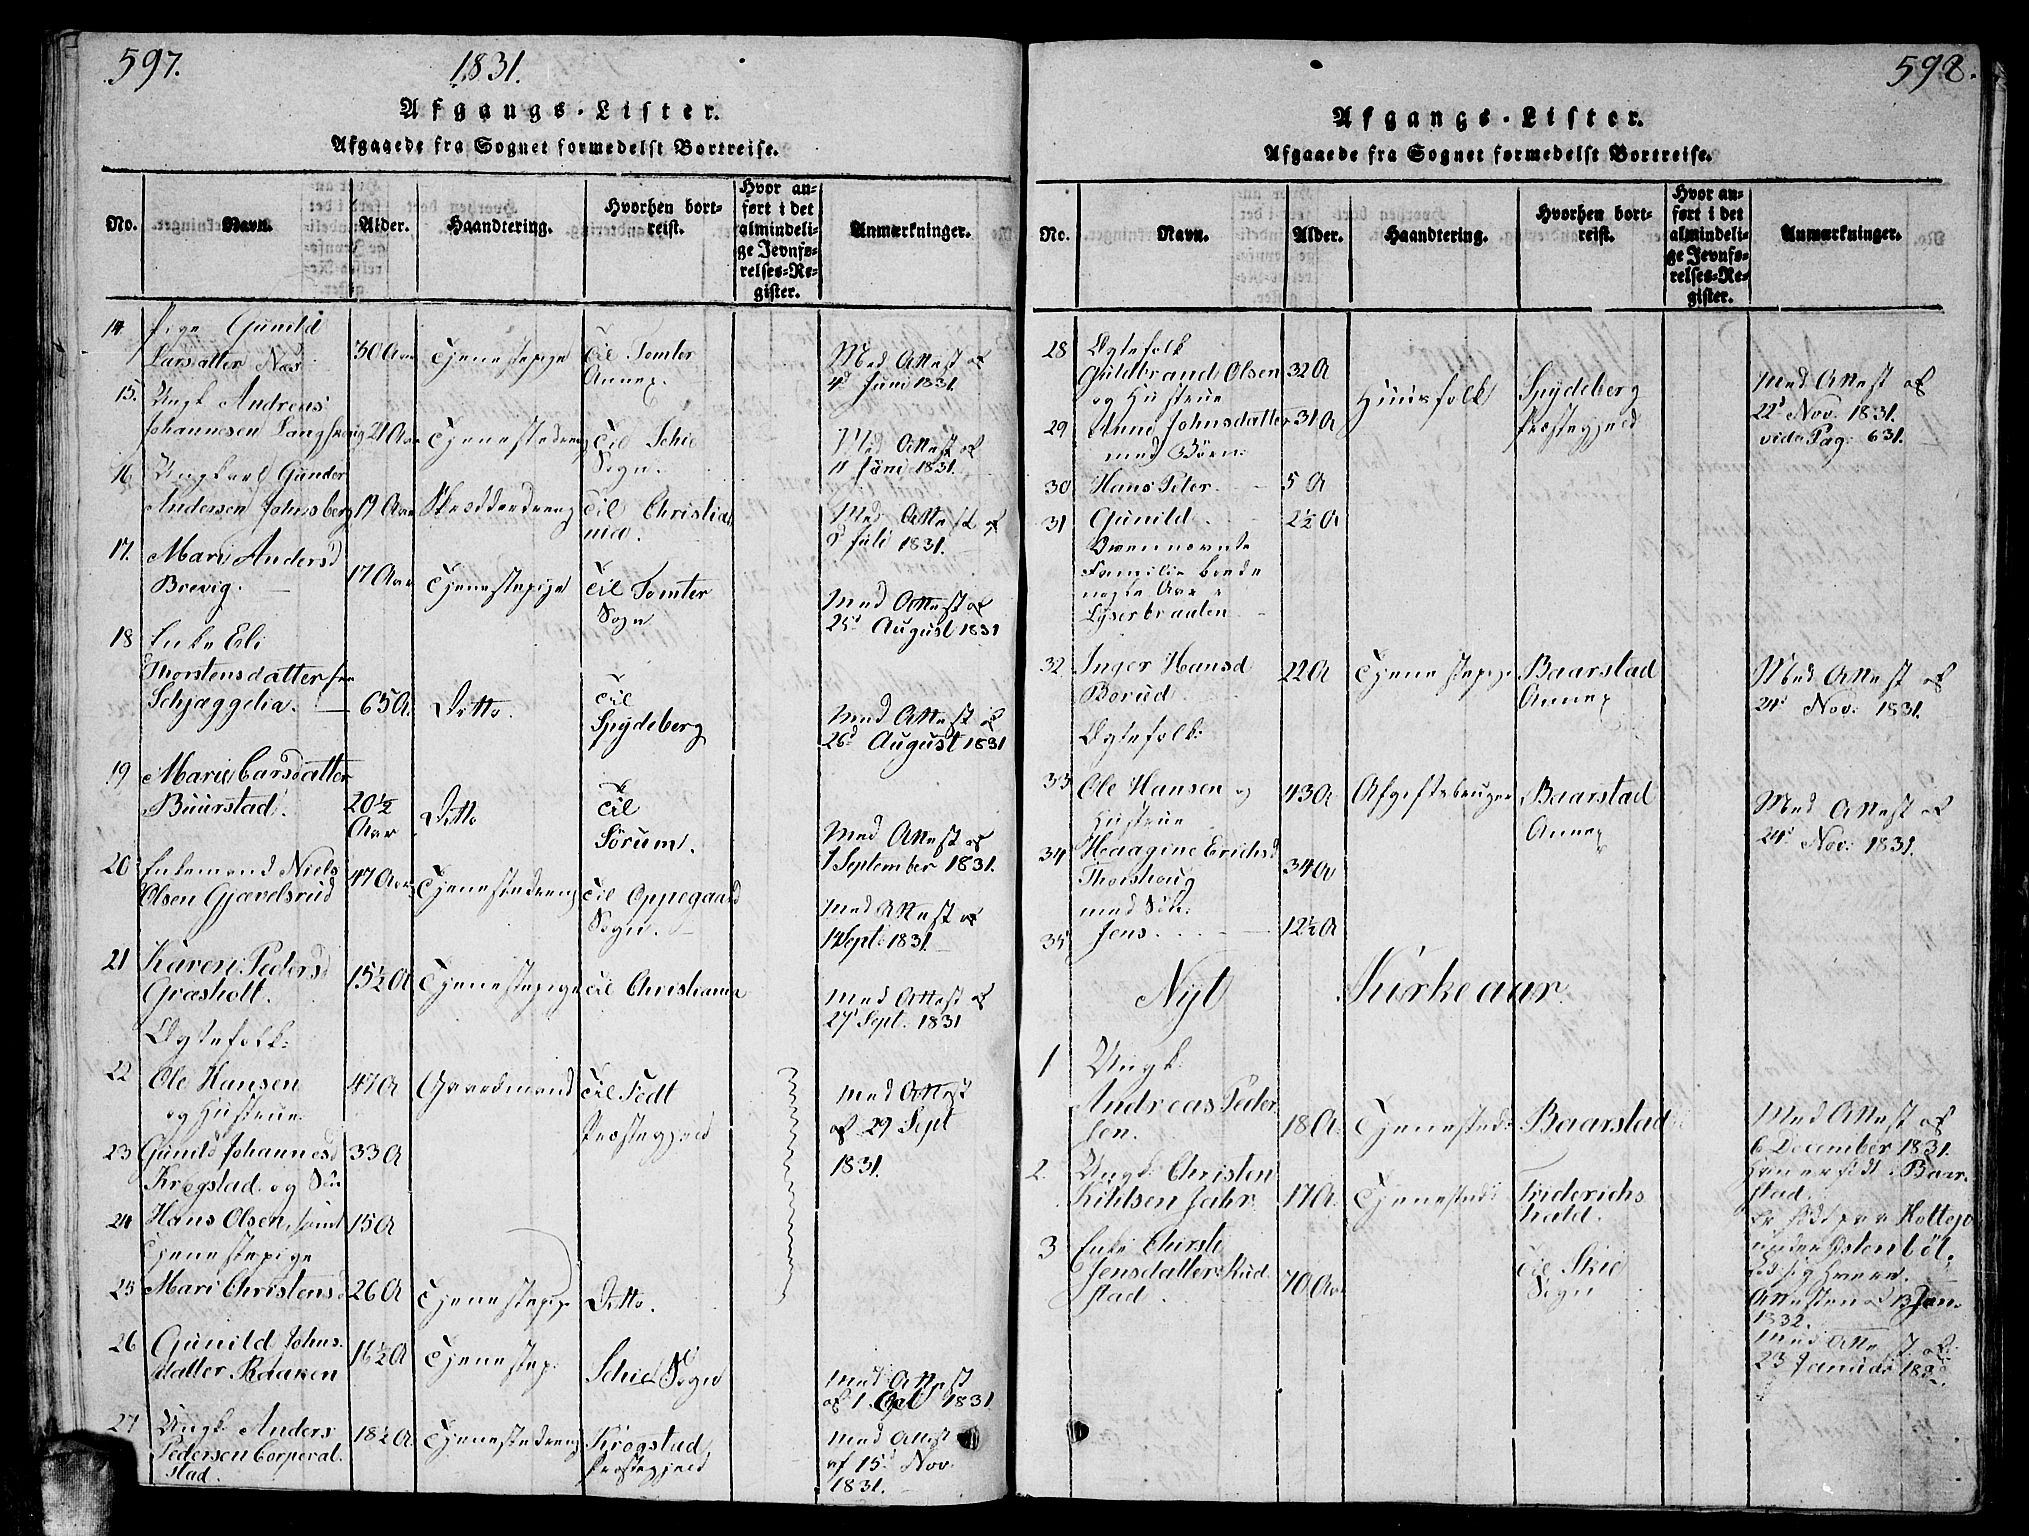 597.
1831.
Afgangs-Lister.
Afgaaede fra Sognet formedelst Bortreise.
No. Navn. Alder. Haandtering. Hvorhen bortreist. Hvor anført i det almindelige Jevnførelses-Register. Anmærkninger.
14. Pige Gunild
Larsdatter Næs 30 Aar Tjenestepige Til Tomter Annex. Med Attest af 4d Juni 1831.
15. Ungk Andreas
Johannesen 21 Aar Tjenestedreng Til Schie Sogn. Med Attest af 11 Juni 1831.
16 Ungkarl Gunder
Andersen Johnsberg 19 Aar Skrædderdreng Til Christiania. Med Attest af 8 Juli 1831.
17. Mari Andersd
Brevig. 17 Aar Tjenestepige Til Tomter Sogn Med Attest af 25d August 1831
18 Enke Eli
Thorstensdatter fra
Schjæggelia. 65 A. Ditto. Til Spydeberg Med Attest af 26d August 1831
19 Marie Larsdatter
Buurstad. 20½ Aar Ditto Til Sörum. Med Attest af 1 September 1831.
20 Enkemand Niels
Olsen Gjævelsrud 47 Aar Tjenestedreng Til Oppegaard Sogn. Med Attest af 14 Sept: 1831
21 Karen Pedersd
Græsholt. 15½ A Tjenestepige Til Christiania Med Attest af 27d Sept. 1831
Ægtefolk:
22 Ole Hansen 47 A Gaardmand Til Næsodt Præstegjeld Med Attest af 29 Sept 1831.
og Hustrue
23 Gunild Johannesd 33 A
Krogstad og Sön
24 Hans Olsen, samt 15 A
Tjenestepige
25 Mari Christensd 26 A Tjenestepige Ditto.
26 Gunild Johns-
datter Raaken 16½ A Tjenestep. Schie Sogn Med Attest af 1. Oct 1831
27 Ungk. Anders
Pedersen Corperal-
stad. 18½ A. Tjenestedreng Krogstad Præstegjeld Med Attest af 15d Nov. 1831.
598.
Afgangs-Lister.
Afgaaede fra Sognet formedelst Bortreise.
No. Navn. Alder. Haandtering. Hvorhen bortreist. Hvor anført i det almindelige Jevnførelses-Register. Anmærkninger.
28 Ægtefolk
Guldbrand Olsen 32 A Huusfolk Spydeberg Præstegjeld Med Attest af 22d Nov. 1831. vide Pag: 631.
og Hustrue
29 Anne Johnsdatter 31 A
med Börn:
30 Hans Peter. 5 A
31 Gunild. 2½ A
Ovennævnte
Familie boede
nogle Aar i
Lyserbraaten
32 Inger Hansd
Borud 22 A Tjenestepige Baarstad Annex Med Attest af 24d Nov: 1831.
Ægtefolk:
33 Ole Hansen og 43 A Afgiftsbruger Baarstad Annex Med Attest af 24d Nov: 1831.
Hustrue
34 Haagine Erichsd
Thorshoug 34 A
med Sön:
35 Jens 12½ A
Nyt Kirkeaar.
1 Ungk.
Andreas Peder-
sen. 18 A. Tjenested: Baarstad Med Attest af 6 December 1831. Han er födt i Baarstad.
2. Ungk: Christen
Kihlsen Jahr 17 A Tjenested: Friderichshald. Er födt paa under Attesten af 13 Jan. 1832.
3 Enke Chirsti
Jensdatter Rud-
stad 70 Aar Til Skie Sogn Med Attest af 23 Januar